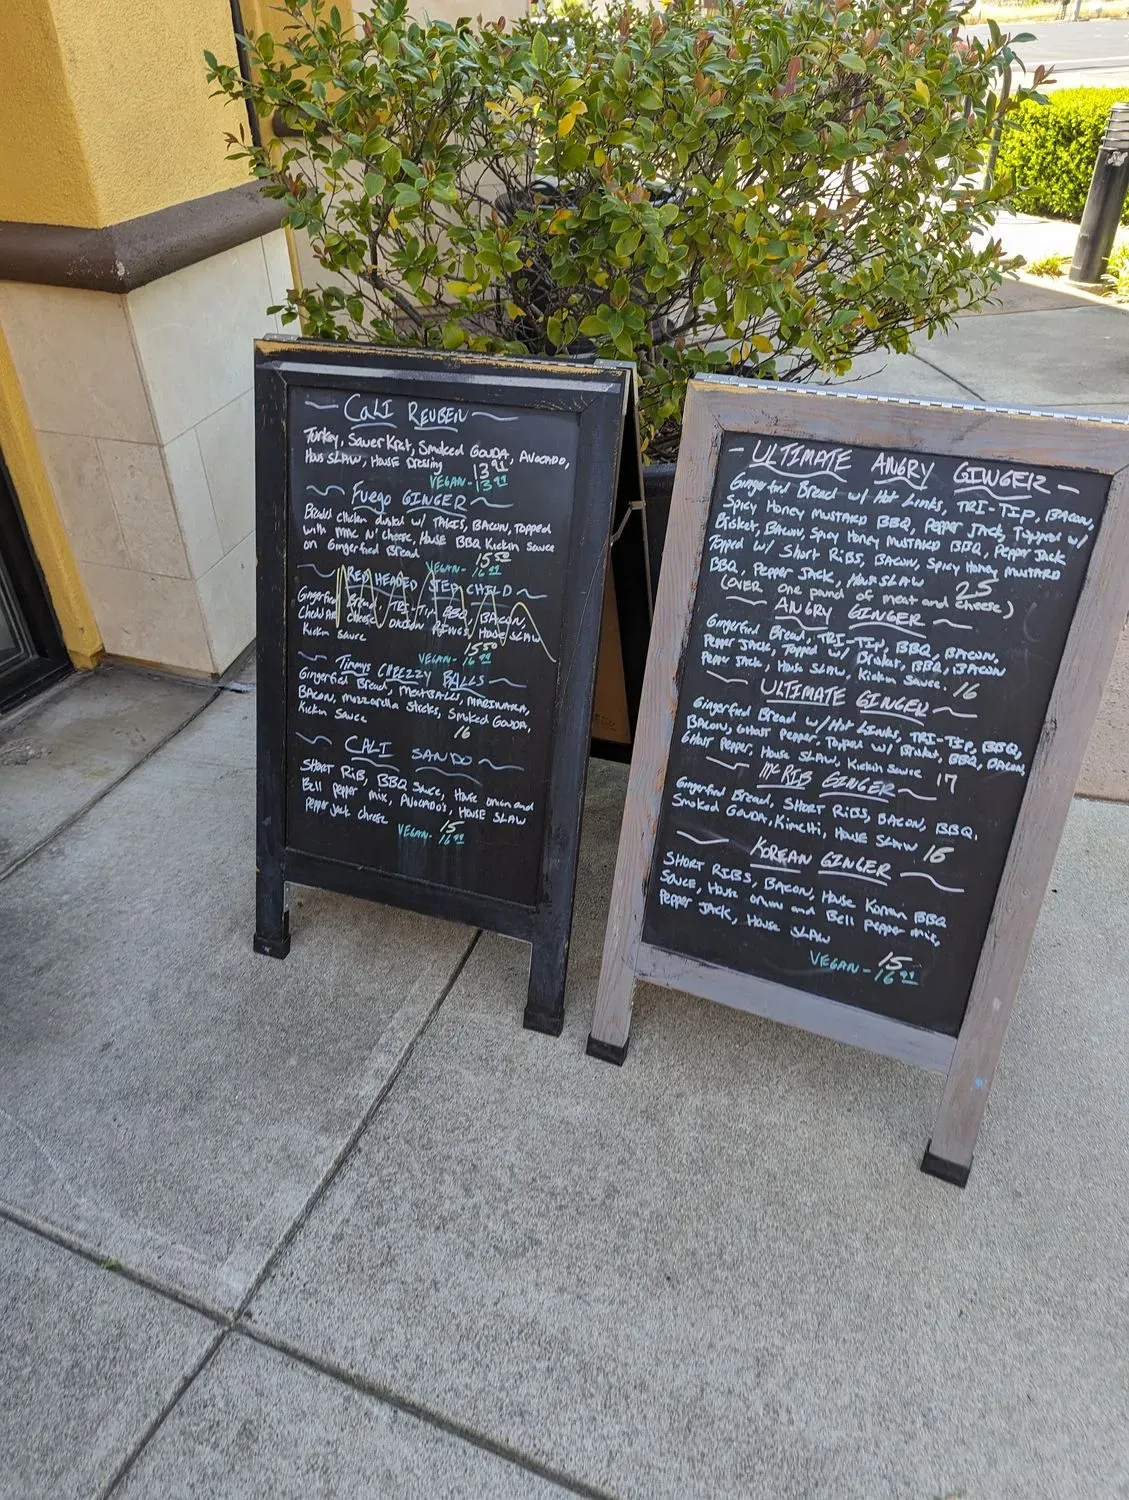 CALI REUBEN
Turkey, SauerKrat, Smoked GOUDA, AVOCADO,
Hous SLAW, House Dresing 13.91
VEGAN - 13.91
Fuego GINGER
Breaded chicken dusted w/ TAKIS, BACON, Topped
with Mac N' Cheese, House BBQ Kickin Sauce
on Gingerford Bread 15.50
VEGAN - 16.99
RED HEADED STEP CHILD
Gingerford Bread, TRI-Tip, BBQ, BACON,
Cheddar Cheese, ONION RINGS, House SLAW
Kickin Sauce 15.50
VEGAN - 16.99
Timmys CHEEZZY BALLS
Gingerford Bread, MEATBALLS, MARINARA,
BACON, Mozzarella Sticks, Smoked GOUDA,
Kickin Sauce
16
CALI SANDO
SHORT RiB, BBQ Sauce, House onion and
Bell pepper mix, Avocado's, HOUSE SLAW
Pepper jack cheese 15
VEGAN - 16.99
ULTIMATE ANGRY GINGER
Gingerford Bread w/ Hot Links, TRI-TIP, BACON,
Spicy Honey MUSTARD BBQ, Pepper Jack, Topped w/
Brisket, Bacon, Spicy Honey MUSTARD BBQ, Pepper Jack
Topped w/ Short RiBS, BACON, Spicy Honey MUSTARD
BBQ, Pepper Jack, House SLAW 25
(OVER one pound of meat and cheese)
ANGRY GINGER
Gingerford Bread, TRI-TIP, BBQ, BACON,
Pepper Jack, Topped w/ Brisket, BBQ, BACON
Pepper Jack, House Slaw, Kickin Sauce. 16
ULTIMATE GINGER
Gingerford Bread w/ Hot Links, TRI-TIP, BBQ,
BACON, Ghost Pepper, Topped w/ Brisket, BBQ, BACON,
Ghost Pepper, House Slaw, Kickin Sauce 17
McRIB GINGER
Gingerford Bread, SHORT RiBS, BACON, BBQ,
Smoked Gouda, Kimchi, House SLAW 16
KOREAN GINGER
SHORT RIBS, BACON, House Korean BBQ
Sauce, House onion and Bell pepper mix,
Pepper Jack, House SLAW
15
VEGAN - 16.99